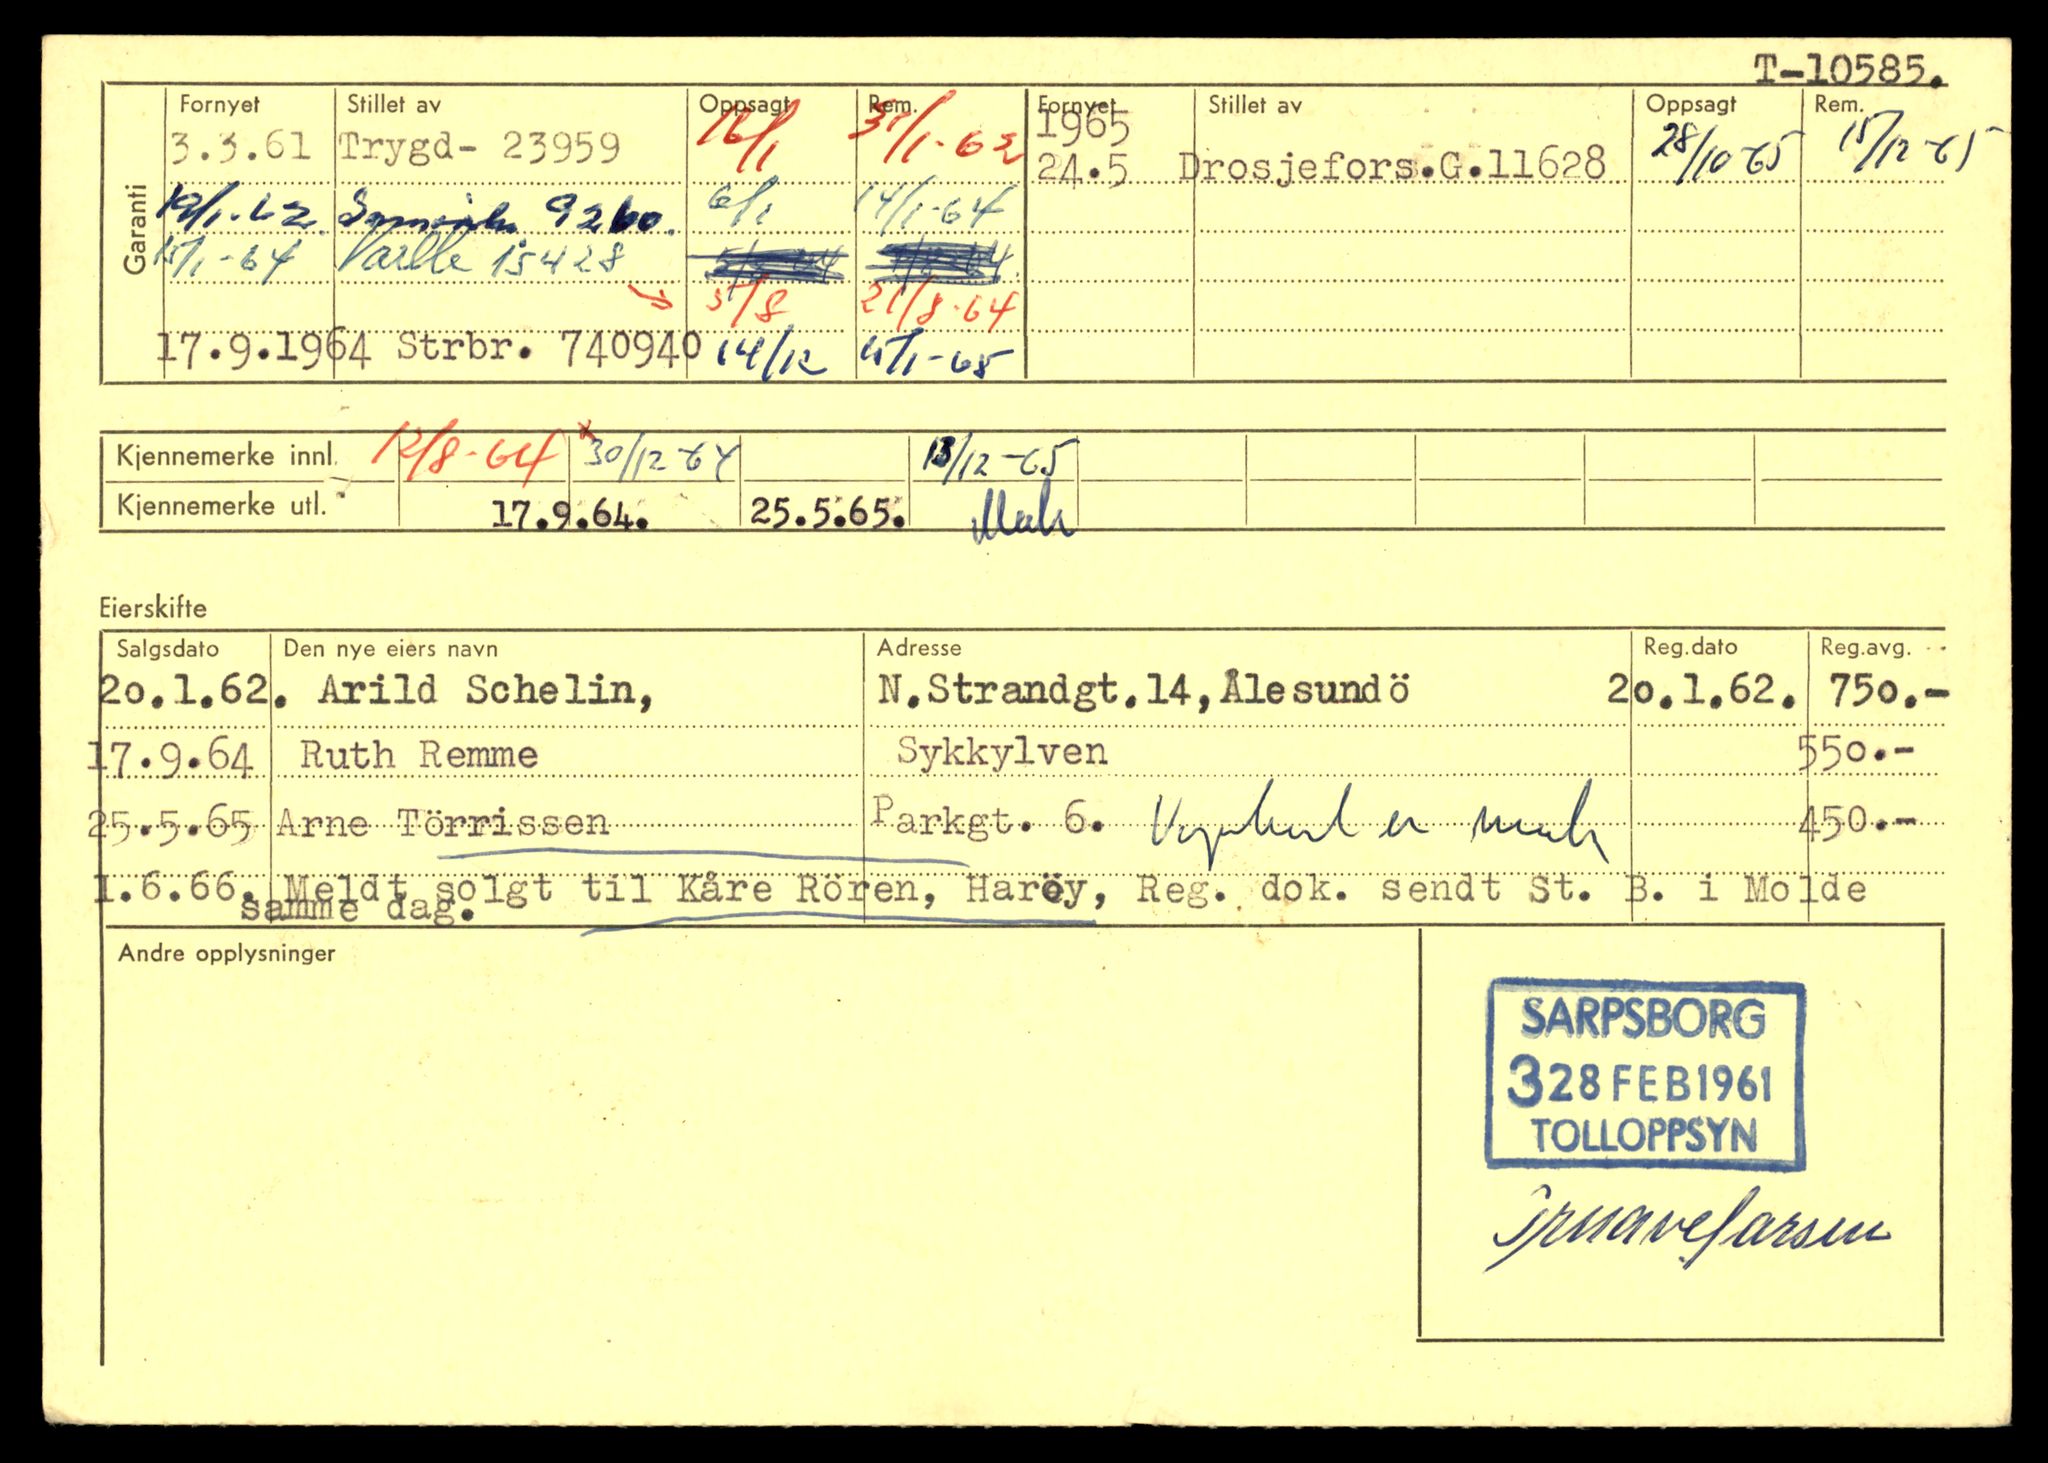 T-10585.
Garanti
Fornyet Stillet av Oppsagt Rem. Fornyet Stillet av Oppsagt Rem.
3.3.61 Trygd- 23959 16/1 31/1-62 1965 24.5 Drosjefors.G.11628 28/10-65 15/12-65
19/1-62 9260. 6/1 14/1-64
15/1-64 15428
5/8 21/8-64
17.9.1964 Strbr. 740940 14/12 4/1-65
Kjennemerke innl. 12/8-64 30/12-64 13/12-65
Kjennemerke utl. 17.9.64. 25.5.65. Mak
Eierskifte
Salgsdato Den nye eiers navn Adresse Reg.dato Reg.avg.
20.1.62. Arild Schelin, N.Strandgt.14,Ålesundö 20.1.62. 750.-
17.9.64 Ruth Remme Sykkylven 550.-
25.5.65 Arne Törrissen Parkgt. 6. Vognkort er mak 450.-
1.6.66. Meldt solgt til Kåre Rören, Haröy, Reg. dok. sendt St. B. i Molde
samme dag.
Andre opplysninger
SARPSBORG
3 28 FEB 1961
TOLLOPPSYN